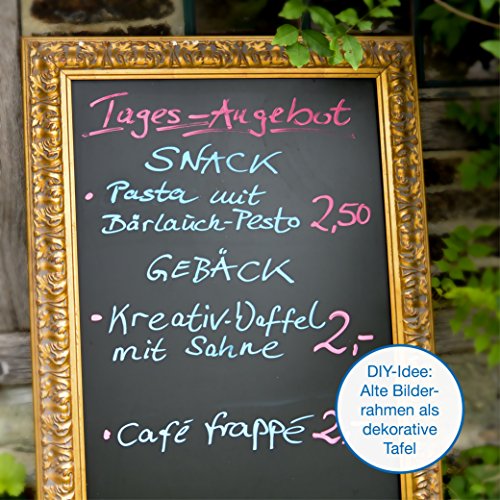 Tages-Angebot
SNACK
• Pasta mit
Bärlauch-Pesto 2,50
GEBÄCK
• Kreativ-Waffel
mit Sahne 2,-
• Café frappé 2,
DIY-Idee:
Alte Bilder-
rahmen als
dekorative
Tafel